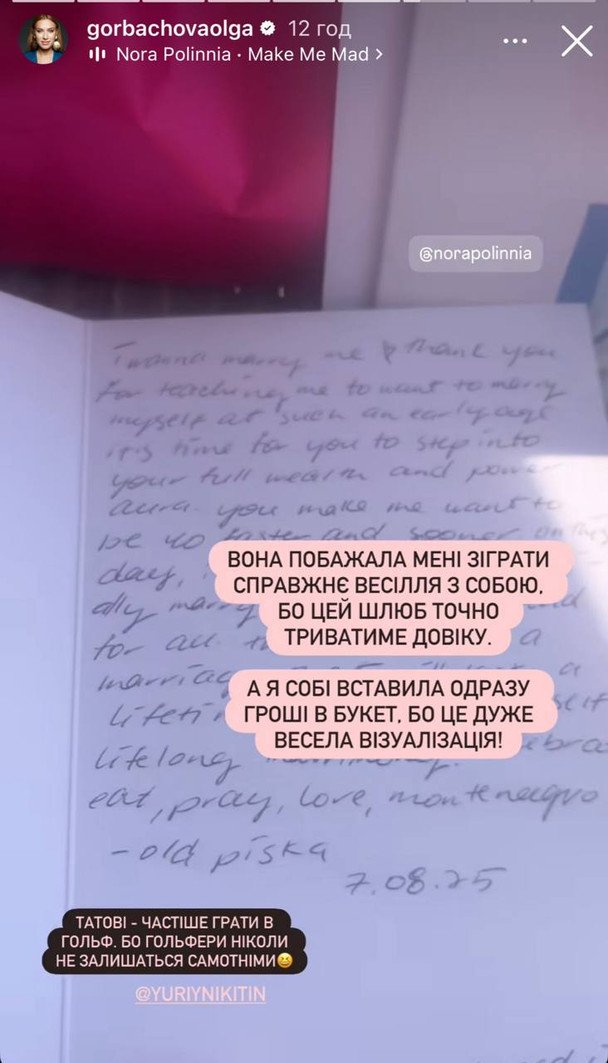 gorbachovaolga 12 год
Nora Polinnia · Make Me Mad >
@norapolinnia
i wanna marry me thank you
for teaching me to want to marry
myself at such an early age
it's time for you to step into
your full wealth and power
aura. you make me want to
be 40 faster and sooner on this
day,
ally marry
for all a
marriag a
lifeti self
lifelong ebra
eat, pray, love, montenegro
- old piska
7.08.25
ВОНА ПОБАЖАЛА МЕНІ ЗІГРАТИ
СПРАВЖНЄ ВЕСІЛЛЯ З СОБОЮ,
БО ЦЕЙ ШЛЮБ ТОЧНО
ТРИВАТИМЕ ДОВІКУ.
А Я СОБІ ВСТАВИЛА ОДРАЗУ
ГРОШІ В БУКЕТ, БО ЦЕ ДУЖЕ
ВЕСЕЛА ВІЗУАЛІЗАЦІЯ!
ТАТОВІ - ЧАСТІШЕ ГРАТИ В
ГОЛЬФ. БО ГОЛЬФЕРИ НІКОЛИ
НЕ ЗАЛИШАТЬСЯ САМОТНІМИ😆
@YURIYNIKITIN